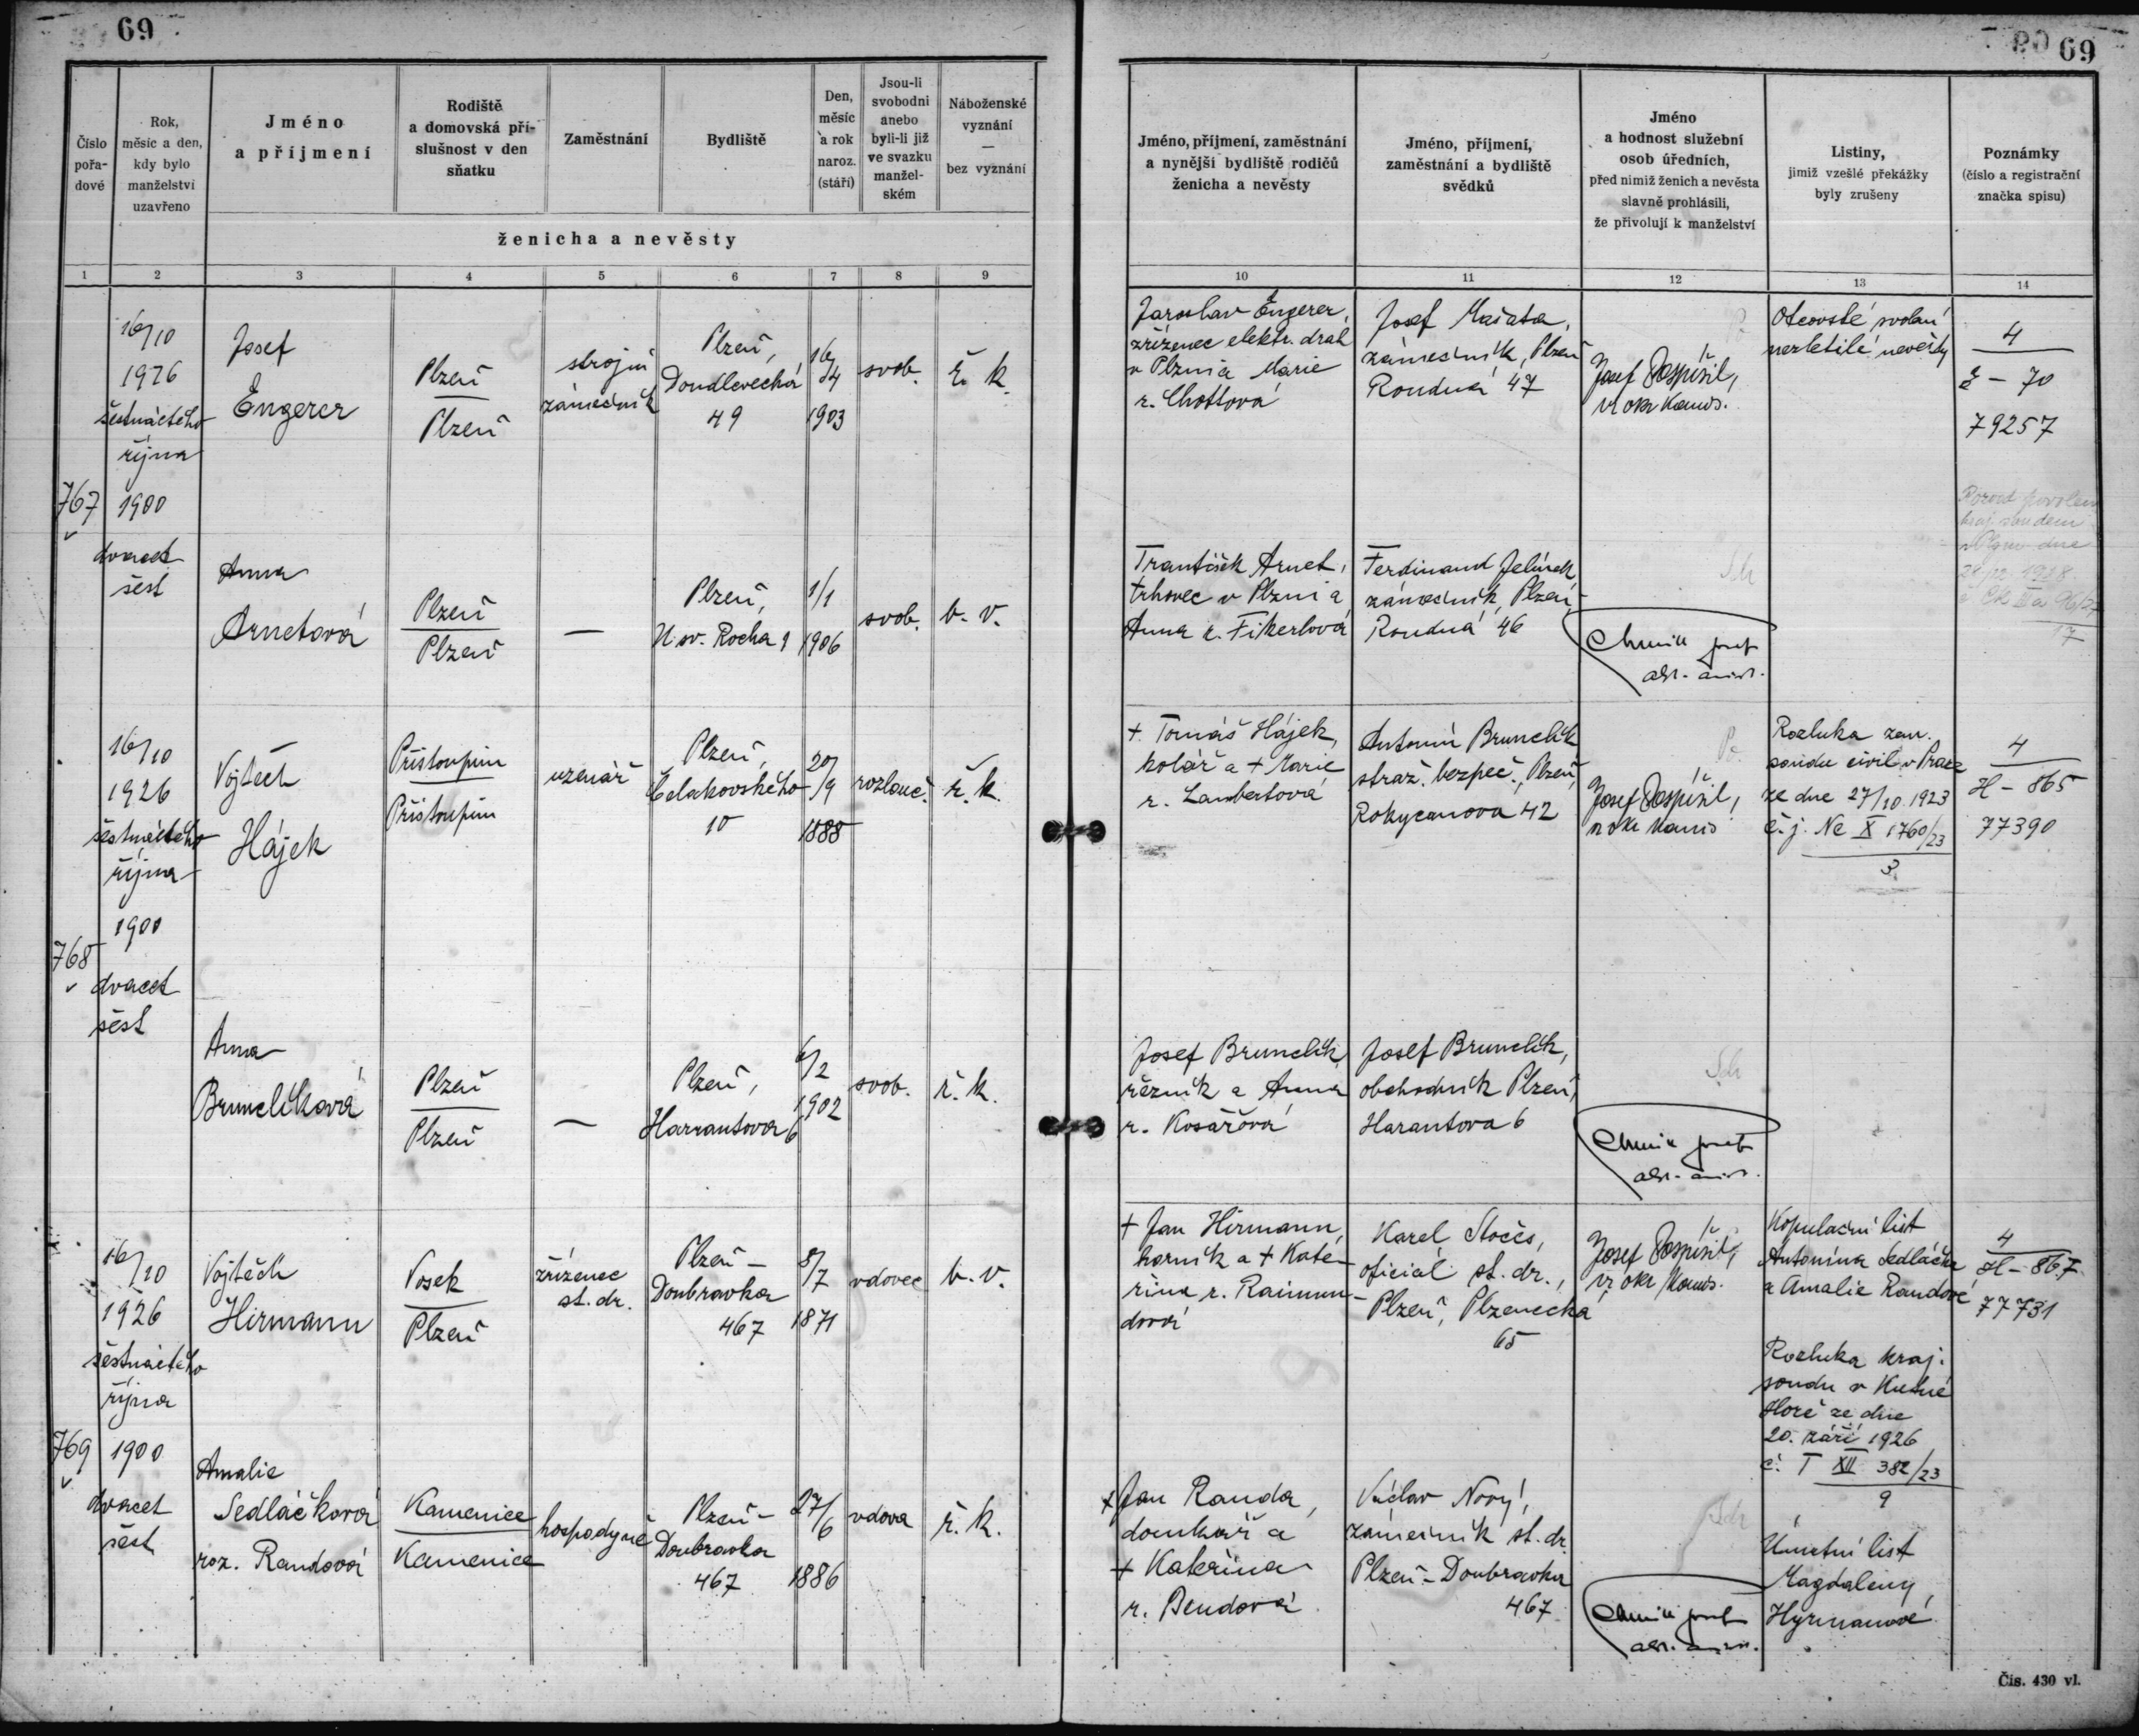 69
69
Číslo
pořa-
dové
Rok,
měsíc a den,
kdy bylo
manželství
uzavřeno
Jméno
a příjmení
Rodiště
a domovská pří-
slušnost v den
sňatku
Zaměstnání
Bydliště
Den,
měsíc
a rok
naroz.
(stáří)
Jsou-li
svobodni
anebo
byli-li již
ve svazku
manžel-
ském
Náboženské
vyznání
—
bez vyznání
ženicha a nevěsty
Jméno, příjmení, zaměstnání
a nynější bydliště rodičů
ženicha a nevěsty
Jméno, příjmení,
zaměstnání a bydliště
svědků
Jméno
a hodnost služební
osob úředních,
před nimiž ženich a nevěsta
slavně prohlásili,
že přivolují k manželství
Listiny,
jimiž vzešlé překážky
byly zrušeny
Poznámky
(číslo a registrační
značka spisu)
1 2 3 4 5 6 7 8 9 10 11 12 13 14
767
16/10
1926
šestnáctého
října
1900
dvacet
šest
Josef
Engerer
Plzeň
Plzeň
strojní
zámečník
Plzeň,
Doudlevecká
49
16/4
1903
svob.
ř. k.
Jaroslav Engerer,
zřízenec elektr. drah
v Plzni a Marie
r. Chottová
Josef Mašata,
zámečník, Plzeň
Roudná 47
Josef Pospíšil,
vr. okr. komis.
Otcovské svolení
nezletilé nevěsty
4
E – 70
79257
Anna
Arnetová
Plzeň
Plzeň
—
Plzeň,
U sv. Rocha 9
1/1
1906
svob.
b. v.
František Arnet,
trhovec v Plzni a
Anna r. Fikerlová
Ferdinand Jelínek
zámečník, Plzeň,
Roudná 46
Rozvod povolen
kraj. soudem
v Plzni dne
1928
768
16/10
1926
šestnáctého
října
1900
dvacet
šest
Vojtěch
Hájek
Přistoupim
Přistoupim
uzenář
Plzeň,
Čelakovského
10
20/9
1888
rozlouč.
ř. k.
+ Tomáš Hájek,
kolář a + Marie
r. Lambertová
Antonín Brunclík
stráž. bezpeč., Plzeň,
Rokycanova 42
Josef Pospíšil,
vr. okr. komis
Rozluka zem.
soudu civil. v Praze
ze dne 27/10 1923
č. j. Nc X 1760/23
3
4
H – 865
77390
Anna
Brunclíková
Plzeň
Plzeň
—
Plzeň,
Harrantova 6
6/2
1902
svob.
ř. k.
Josef Brunclík,
řezník a Anna
r. Kosařová
Josef Brunclík,
obchodník Plzeň,
Harantova 6
769
16/10
1926
šestnáctého
října
1900
dvacet
šest
Vojtěch
Hirmann
Vosek
Plzeň
zřízenec
st. dr.
Plzeň –
Doubravka
467
8/7
1871
vdovec
b. v.
+ Jan Hirmann,
horník a + Kate-
řina r. Raimun-
dová
Karel Stočes,
oficiál st. dr.,
Plzeň, Plzenecká
65
Josef Pospíšil,
vr. okr. komis.
Kopulační list
Antonína Sedláčka
a Amalie Randové
Rozluka kraj.
soudu v Kutné
Hoře ze dne
20. září 1926
č. T XII 382/23
9
Úmrtní list
Magdaleny
Hyrmanové
4
H – 867
77731
Amalie
Sedláčková
roz. Randová
Kamenice
Kamenice
hospodyně
Plzeň –
Doubravka
467
27/6
1886
vdova
ř. k.
+ Jan Randa,
domkář a
+ Kateřina
r. Bendová
Václav Nový,
zámečník st. dr.
Plzeň – Doubravka
467
Čís. 430 vl.